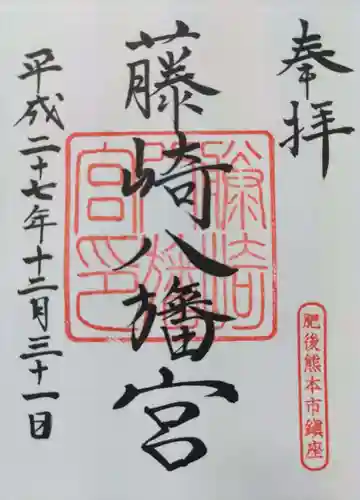 奉拝
藤崎八旛宮
平成二十七年十二月三十一日
藤崎八旛宮印
肥後熊本市鎮座